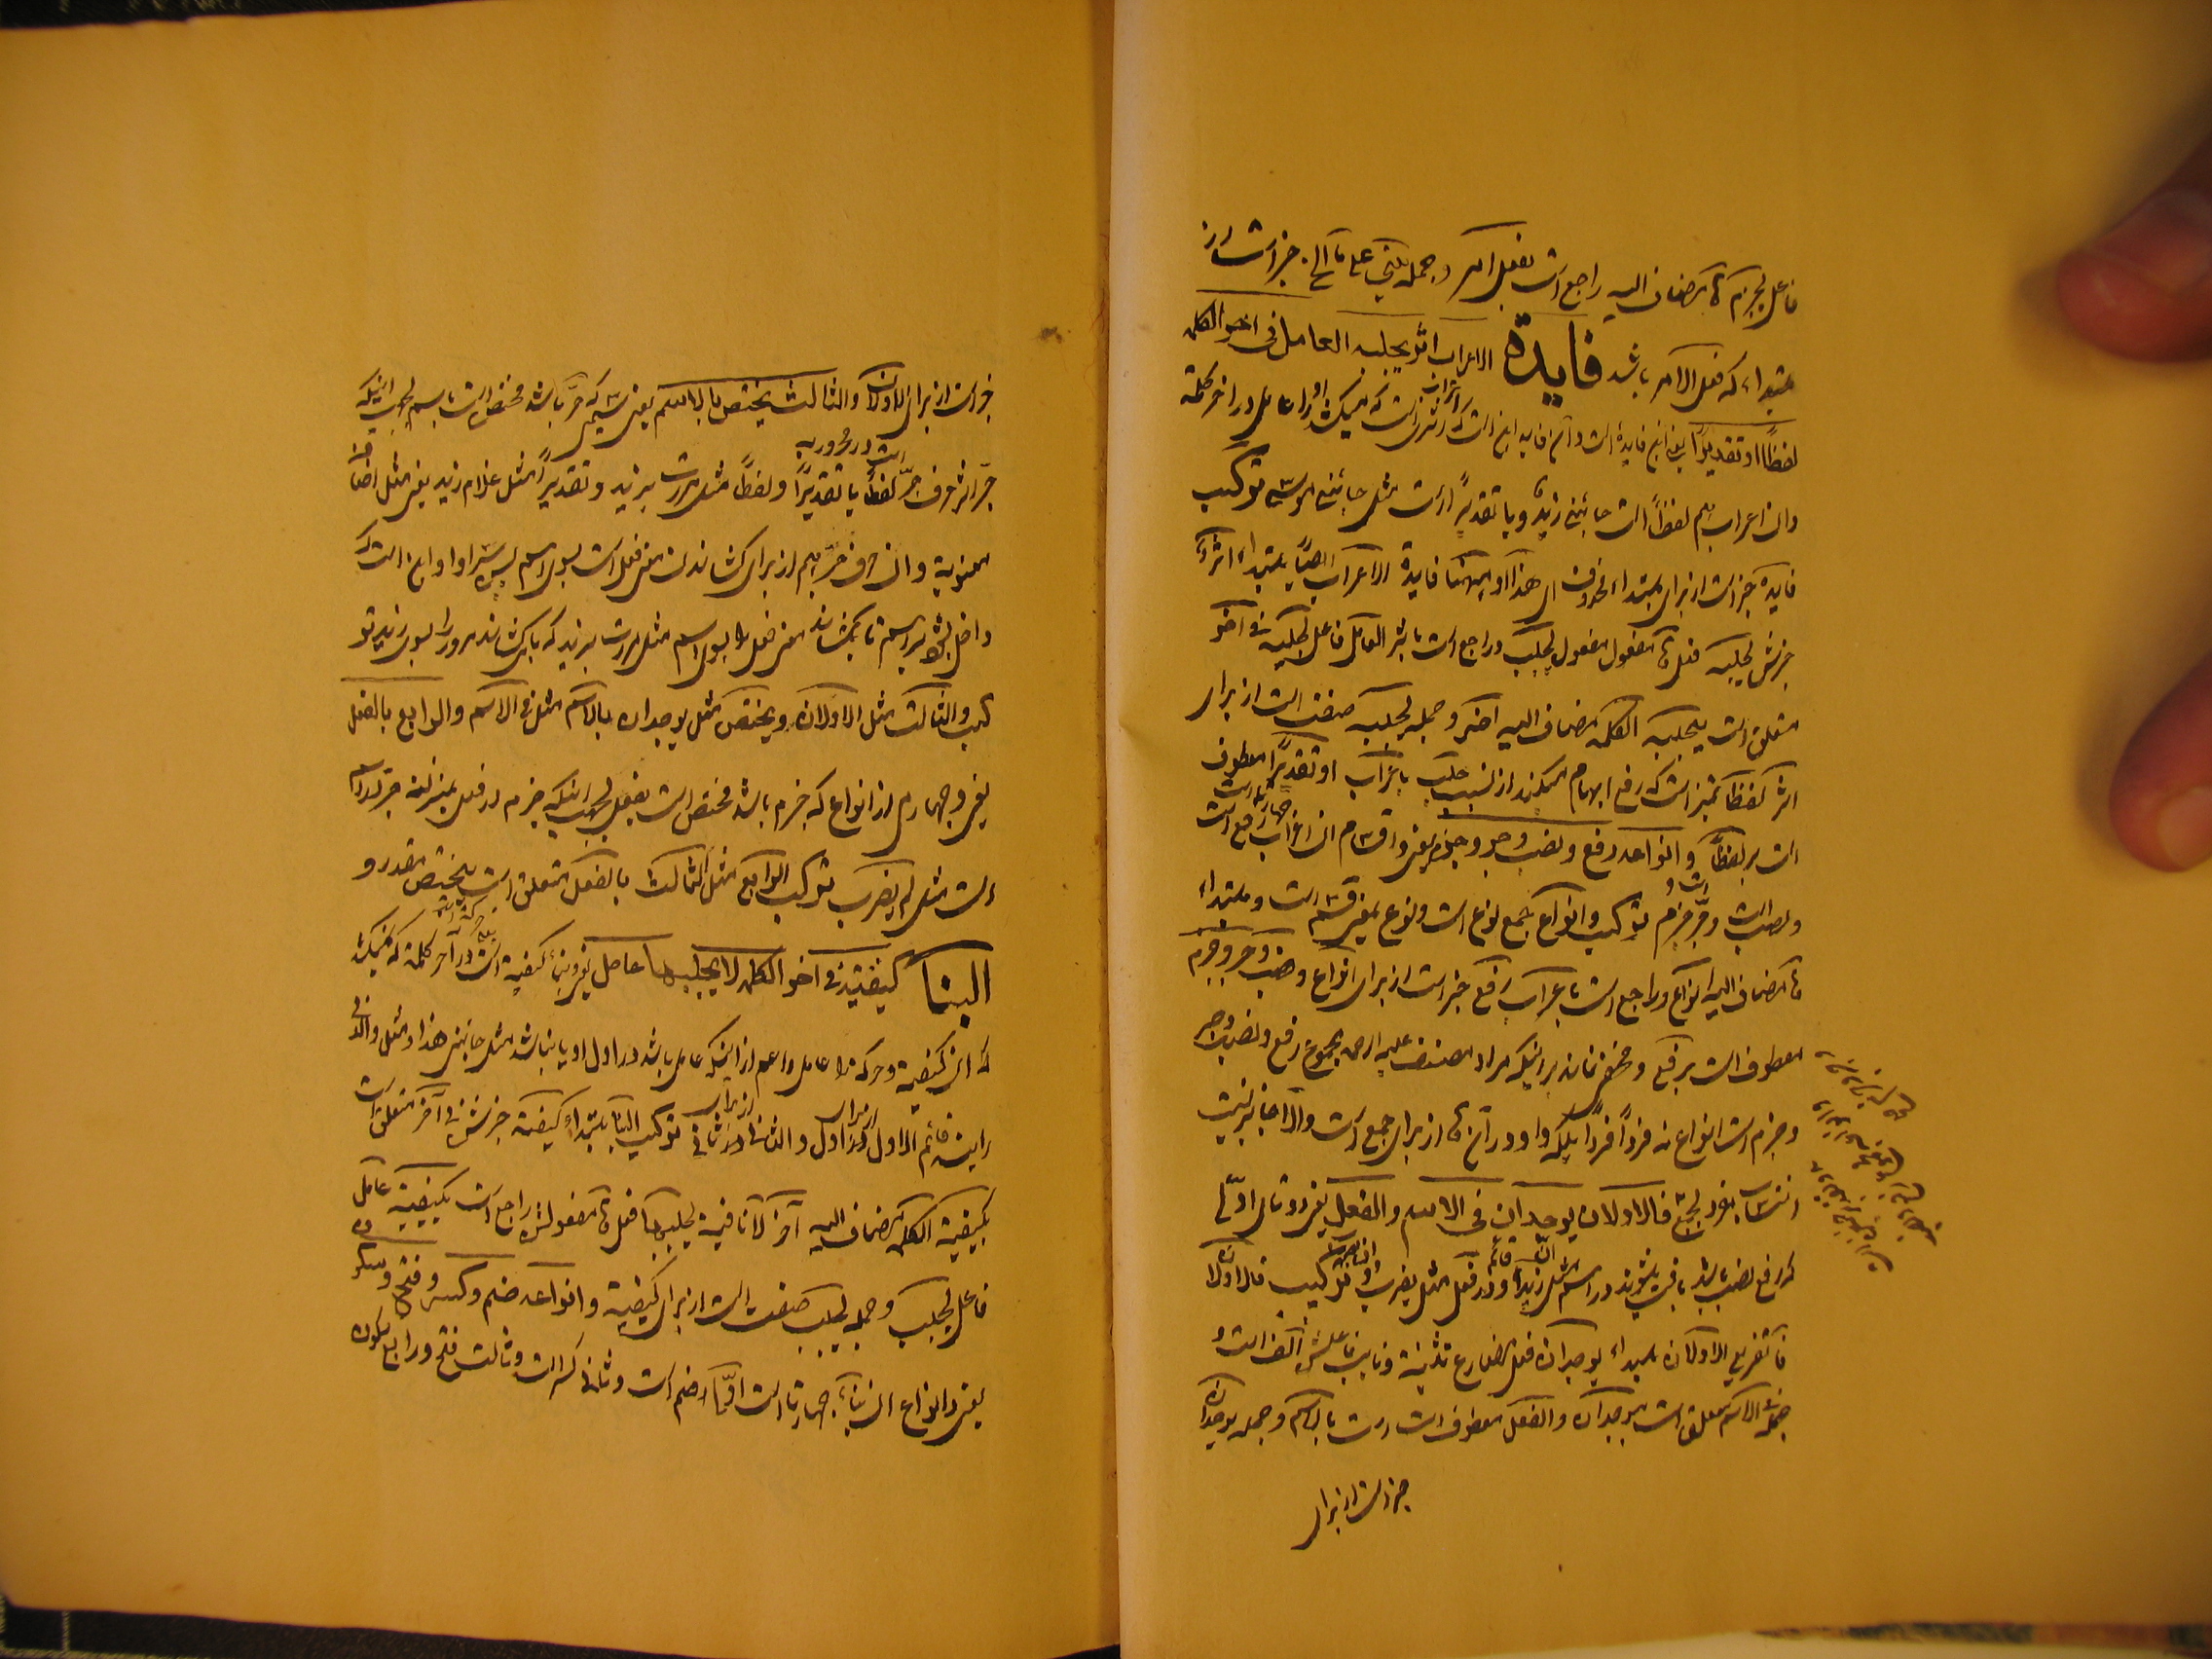 فاعل یجزم ها مضاف الیه راجع است بفعل امر و جمله یبنی علی ما الخ خبر است از
مبتداء که فعل الامر باشد فایدة الاعراب اثر یجلبه العامل فی اخر الکلمة
لفظاً او تقدیراً یعنی این فایده است و آن فایه این است که اعراب اثری است که میکشد او را عامل در اخر کلمة
و ان اعراب یا هم لفظاً است جائنی زیدٌ و یا تقدیراً است مثل جائنی موسی ترکیب
فایدة خبر است از برای مبتداء محذوف ای هذا او هیهنا فایدة الاعراب ایضاً مبتداء اثرٌ
خبرش یجلبه فعل ها مفعول مفعول یجلب و راجع است باثر العامل فاعل یجلبه فی اخر
متعلق است بیجلبه الکلمة مضاف الیه اخر و جمله یجلبه صفت است از برای
اثر لفظاً تمیز است که رفع ابهام میکند از نسبت جلب باعراب او تقدیراً معطوف
است بر لفظاً و انواعه رفع و نصب و جر و جزم یعنی و اقسام ان اعراب چهار تا است رفع است
و نصب است و جرّ است و جزم ترکیب و انواع جمع نوع است و نوع بمعنی قسم است و مبتداء
ها مضاف الیه انواع و راجع است باعراب رفع خبر است از برای انواع و نصب و جر و جزم
معطوف است برفع و مخفی نماند بر اینکه مراد مصنف علیه الرحمه مجموع رفع و نصب و جر
و جزم است انواع نه فرداً فرداً بلکه واو در آن ها از برای جمع است و الا جایز نیست
انتساب مفرد بجمع فالاولان یوجدان فی الاسم و الفعل یعنی دو تای اوّل
که رفع نصب باشد یافت میشوند در اسم مثل زیدٌ قائم انّ و در فعل مثل یضرب و ان یضرب ترکیب فالاولان
فا تفریع الاولان مبتداء یوجدان فعل مضارع تثنیة و نایب فاعلش الف است و
فی الاسم متعلق است بیوجدان و الفعل معطوف است بالاسم و جمله یوجدان
خبر است از برای
خبر است از برای الاولان و الثالث یختص بالاسم یعنی سیمی که جرّ باشد مختص است باسم بجهت اینکه
جرّ اثر حرف جرّ است در مجروریه لفظاً یا تقدیراً و لفظاً مثل مررت بزید و تقدیراً مثل غلام زید یعنی مثل اضافه
معنویة و ان حرف جرّ هم از برای کشاندن معنی فعل است بسوی اسم پس سزاوار این است که
داخل بشود بر اسم تا بکشاند معنی فعل را بسوی اسم مثل مررت بزید که باء کشاند مرور را بسوی زید تو
کیب و الثالث مثل الاولان و یختص مثل یوجدان بالاسم مثل فی الاسم و الرابع بالفعل
یعنی و چهارم از انواع که جزم باشد مختص است بفعل بجهت اینکه جزم در فعل بمنزله جر در اسم
است مثل لم یضرب ترکیب الرابع مثل الثالث بالفعل متعلق است بیختص مقدر و
البنا کیفیّة فی آخر الکلمة لا یجلبها عامل یعنی و بناء کیفیة است در آخر کلمة که نمیکشد
که ان کیفیة و حرکة را عامل و اعم از اینکه عامل باشد در اول او یا نباشد مثل جائنی هذا و مثل و الذی
رایته قائم الاول از برای اول و الثانی از برای ثانی ترکیب البنا مبتداء کیفیة خبرش فی آخر متعلق است
بکیفیة الکلمة مضاف الیه آخر لا نافیة یجلبها فعل ها مفعولش راجع است بکیفیة عامل
فاعل یجلب و جمله یجلب صفت است از برای کیفیة و انواعه ضم و کسر و فتح و سکون
یعنی و انواع ان بناء چهار تا است اوّل ضم است و ثانی کسر است و ثالث فتح و رابع سکون